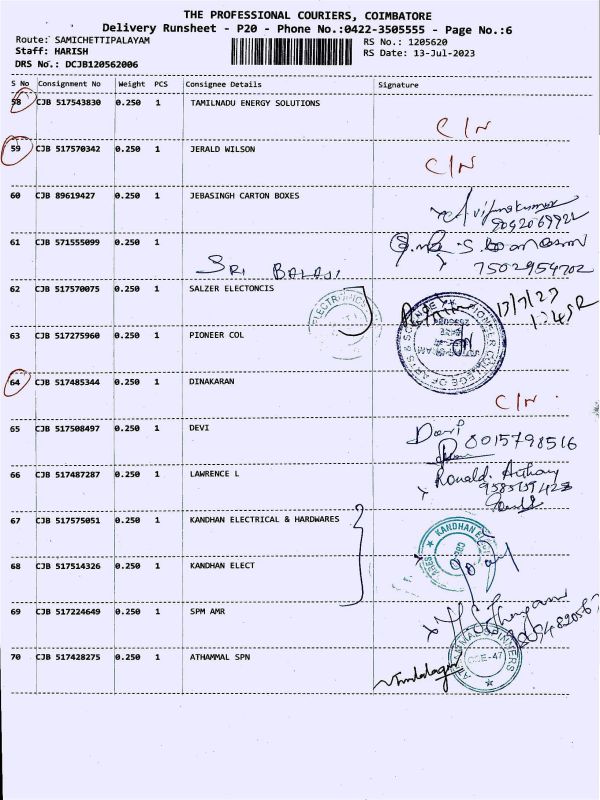 THE PROFESSIONAL COURIERS, COIMBATORE
Delivery Runsheet - P20 - Phone No.:0422-3505555 - Page No.:6
Route: SAMICHETTIPALAYAM
Staff: HARISH
DRS No.: DCJB120562006
RS No.: 1205620
RS Date: 13-Jul-2023
S No Consignment No Weight PCS Consignee Details Signature
58 CJB 517543830 0.250 1 TAMILNADU ENERGY SOLUTIONS
C/N
59 CJB 517570342 0.250 1 JERALD WILSON
C/N
60 CJB 89619427 0.250 1 JEBASINGH CARTON BOXES
61 CJB 571555099 0.250 1
7502954702
SRI BALAJI
62 CJB 517570075 0.250 1 SALZER ELECTONCIS
ELECTRONICS
63 CJB 517275960 0.250 1 PIONEER COL
PIONEER COLLEGE OF ARTS & SCIENCE
64 CJB 517485344 0.250 1 DINAKARAN
C/N
65 CJB 517508497 0.250 1 DEVI
Devi
8015798516
66 CJB 517487287 0.250 1 LAWRENCE L
Ronald. Anthony
67 CJB 517575051 0.250 1 KANDHAN ELECTRICAL & HARDWARES
KANDHAN
68 CJB 517514326 0.250 1 KANDHAN ELECT
69 CJB 517224649 0.250 1 SPM AMR
70 CJB 517428275 0.250 1 ATHAMMAL SPN
ATHAMMAL SPINNERS
CBE-47